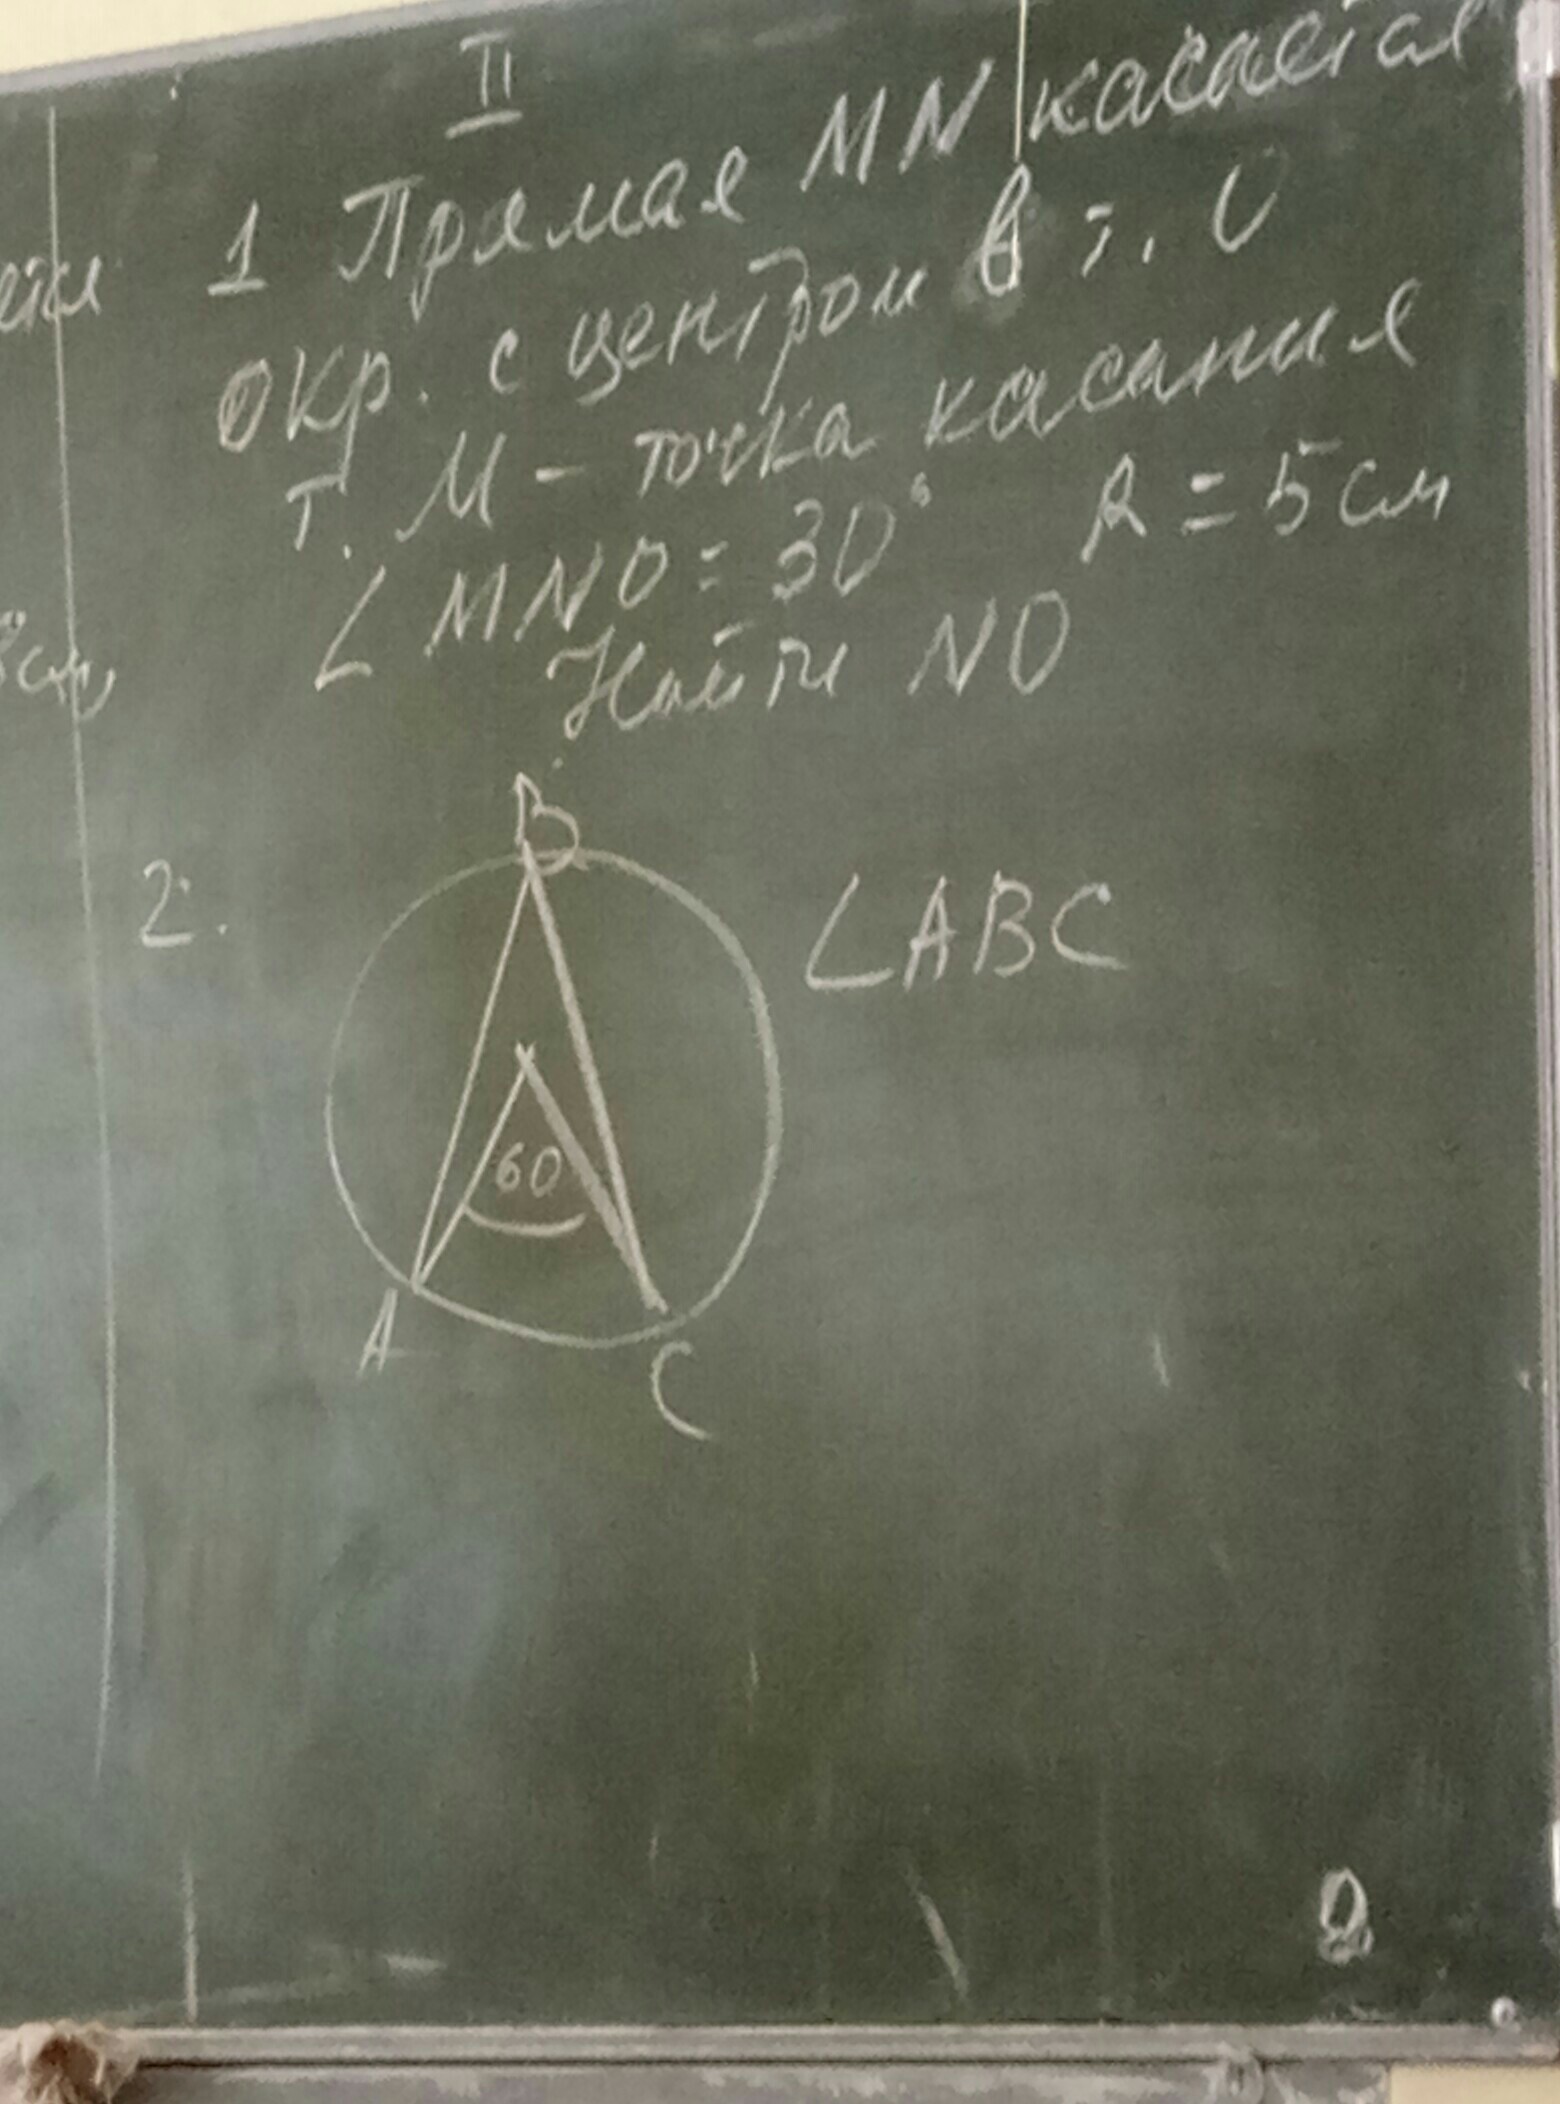 II
1 Прямая MN касается
окр. с центром в т. O
т. M - точка касания
∠MNO = 30° R = 5 см
Найти NO
2.
B
∠ABC
60
A
C